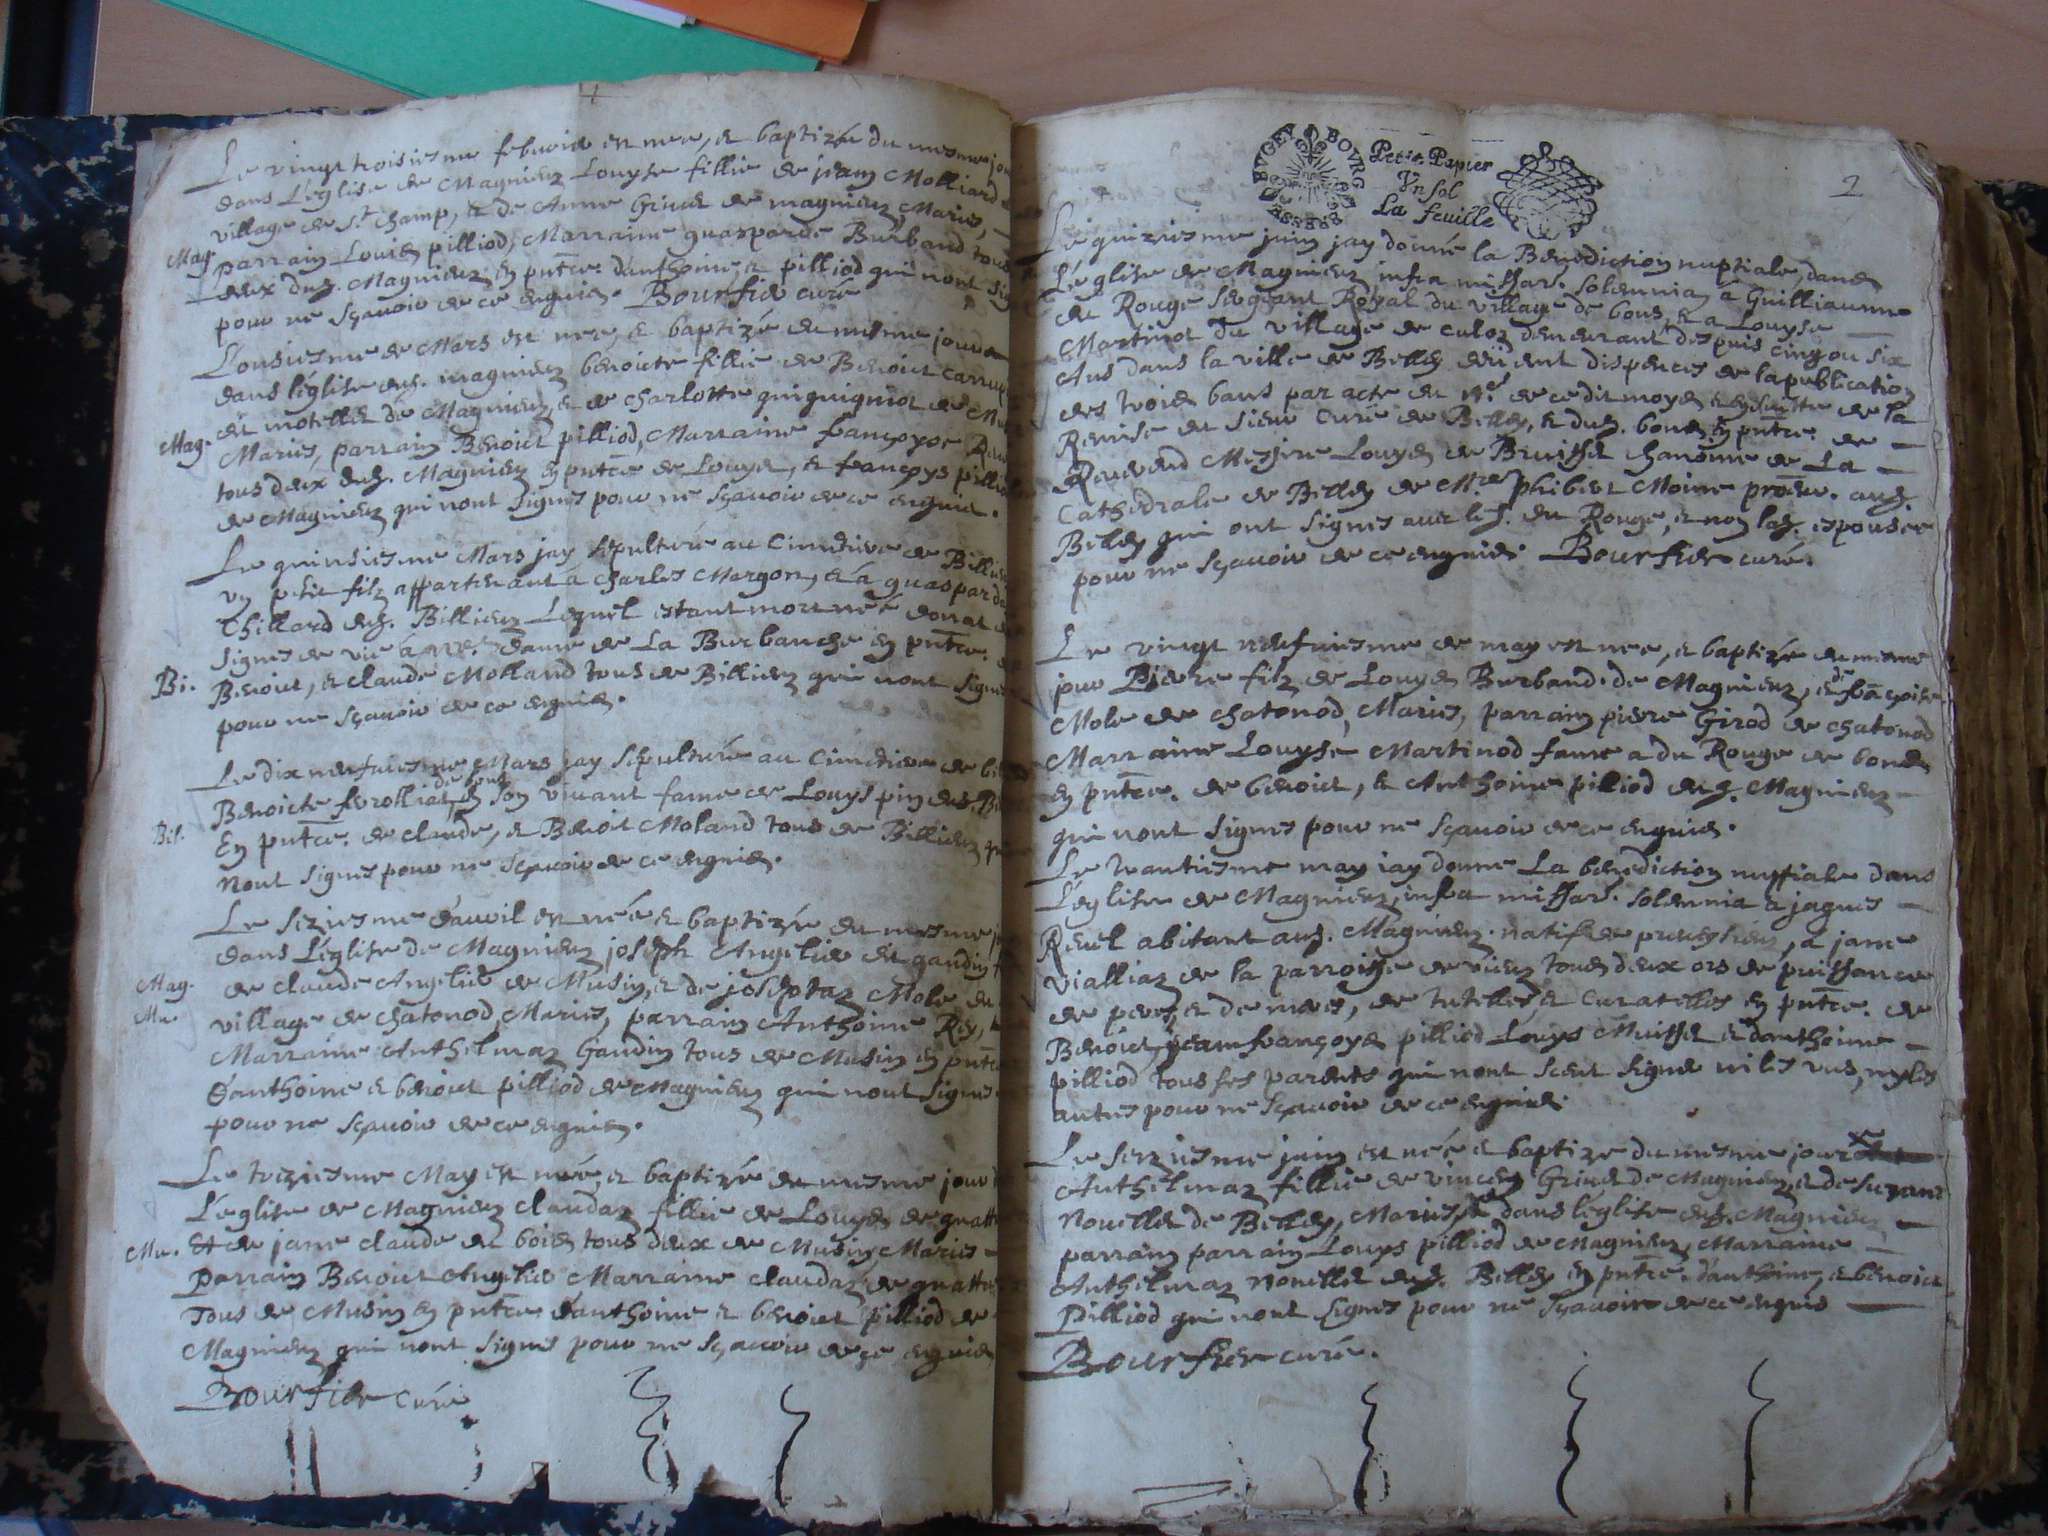 Le vingt troisiesme febvrier est nee, et baptizée du mesme jou
dans L'église de Magnieu Louyse fillie de jean Molliard
village de St champ, et de Anne Grinet de magnieu, Mariés,
Mag. parrain Louis pilliod, Marraine guasparde Burband tous
deux dud. Magnieu en pntce. d'anthoine, et pilliod qui n'ont sig
pour ne sçavoir de ce enquis. Bourfier curé
L'onsiesme de Mars est nee, et baptizée du mesme jour
dans l'église dud. magnieu benoicte fillie de Benoict
du de Magnieu, et de charlotte de
Mag. Mariés, parrain Benoict pilliod, Marraine françoyse
tous deux dud. Magnieu en pntce de Louys, et françoys pillio
de Magnieu qui n'ont signés pour ne sçavoir de ce enquis.
Le quinsiesme Mars jay sepulturé au Cimetière de Billieu
un petit filz appartenant à charles Margon, et à guasparde
Thillard dud. Billieu Lequel estant mort né donat
signes de vie à dame de La Burbanche en pntce.
Bi. Benoict, et claude Molland tous de Billieu qui n'ont signé
pour ne sçavoir de ce enquis.
Le dix neufiesme Mars jay sepulturé au Cimetière de bi
de bons
Benoicte ferolliat, en son vivant fame de Louys pin dud. Bi
Bil. En pntce. de claude, et Benoit Moland tous de Billieu qu
Nont signés pour ne sçavoir de ce enquis.
Le seziesme d'avril est né et baptizé du mesme j
dans L'église de Magnieu joseph Angelier dit gaudin f
Mag. de claude Angelier de Musin, et de Mole du
Mu. village de chatonod, Mariés, parrain Anthoine Rey,
Marraine Anthelmaz Gaudin tous de Musin en pntce
d'anthoine et benoict pilliod de Magnieu qui n'ont signés
pour ne sçavoir de ce enquis.
Le treziesme May est née, et baptizée du mesme jour d
L'église de Magnieu claudaz fillie de Louys de quatt
Mu. Et de jane claude du bois tous deux de Musin, Mariés
Parrain Benoict Angelier Marraine claudaz de quatt
Tous de Musin en pntce d'anthoine et benoict pilliod de
Magnieu qui n'ont signés pour ne sçavoir de ce enquis
Bourfier curé
BVGEY BOVRG
Petit Papier
Vn sol
La feuille
2
Le quiziesme juin jay donné la Benediction nuptiale, dans
L'église de Magnieu infra missar. solennia à Guilliaume
du Rouge sergeant Royal du village de bons, et a Louyse
Martinot du village de culoz demeurant despuis cinq ou six
Ans dans la ville de Belley dispences de la publication
des trois bans par acte du de ce dit moys et ensuitte de la
Remise du sieur Curé de Belley, et dud. bons, en pntce. de
Reverend Messire Louys de chanoine de La
Cathedrale de Belley de Mre phibert Moine aud.
Belley qui ont signés avec led. du Rouge, et non lad. espousee
pour ne sçavoir de ce enquis. Bourfier curé.
Le vingt neufiesme de may est nee, et baptizée du mesme
jour Pierre filz de Louys Burband de Magnieu, et de françoise
Mole de chatonod, Mariés, parrain pierre Girod de chatonod
Marraine Louyse Martinod fame a du Rouge de bons
en pntce. de benoict, et Anthoine pilliod dud. Magnieu
qui n'ont signés pour ne sçavoir de ce enquis.
Le trantiesme may jay donne La benediction nuptiale dans
L'église de Magnieu, infra missar. solennia à jaques
Revel abitant aud. Magnieu natif de à jane
Vialliaz de la parroisse de tous deux ors de puissance
de peres, et de meres, de tutelles, et curatelles en pntce. de
Benoict, jean françoys pilliod Louys et d'anthoine
pilliod tous ses parents qui n'ont sceut signer ni les uns, ny les
autres pour ne sçavoir de ce enquis.
Le seziesme juin est née et baptize du mesme jour
Anthelmaz fillie de vincent Grinet de Magnieu, et de suzane
Nouellet de Belley, Mariés, dans l'église dud. Magnieu
parrain parrain Louys pilliod de Magnieu, Marraine
Anthelmaz Nouellet dud. Belley en pntce. d'anthoine, et benoict
Pilliod qui n'ont signés pour ne sçavoir de ce enquis
Bourfier curé.